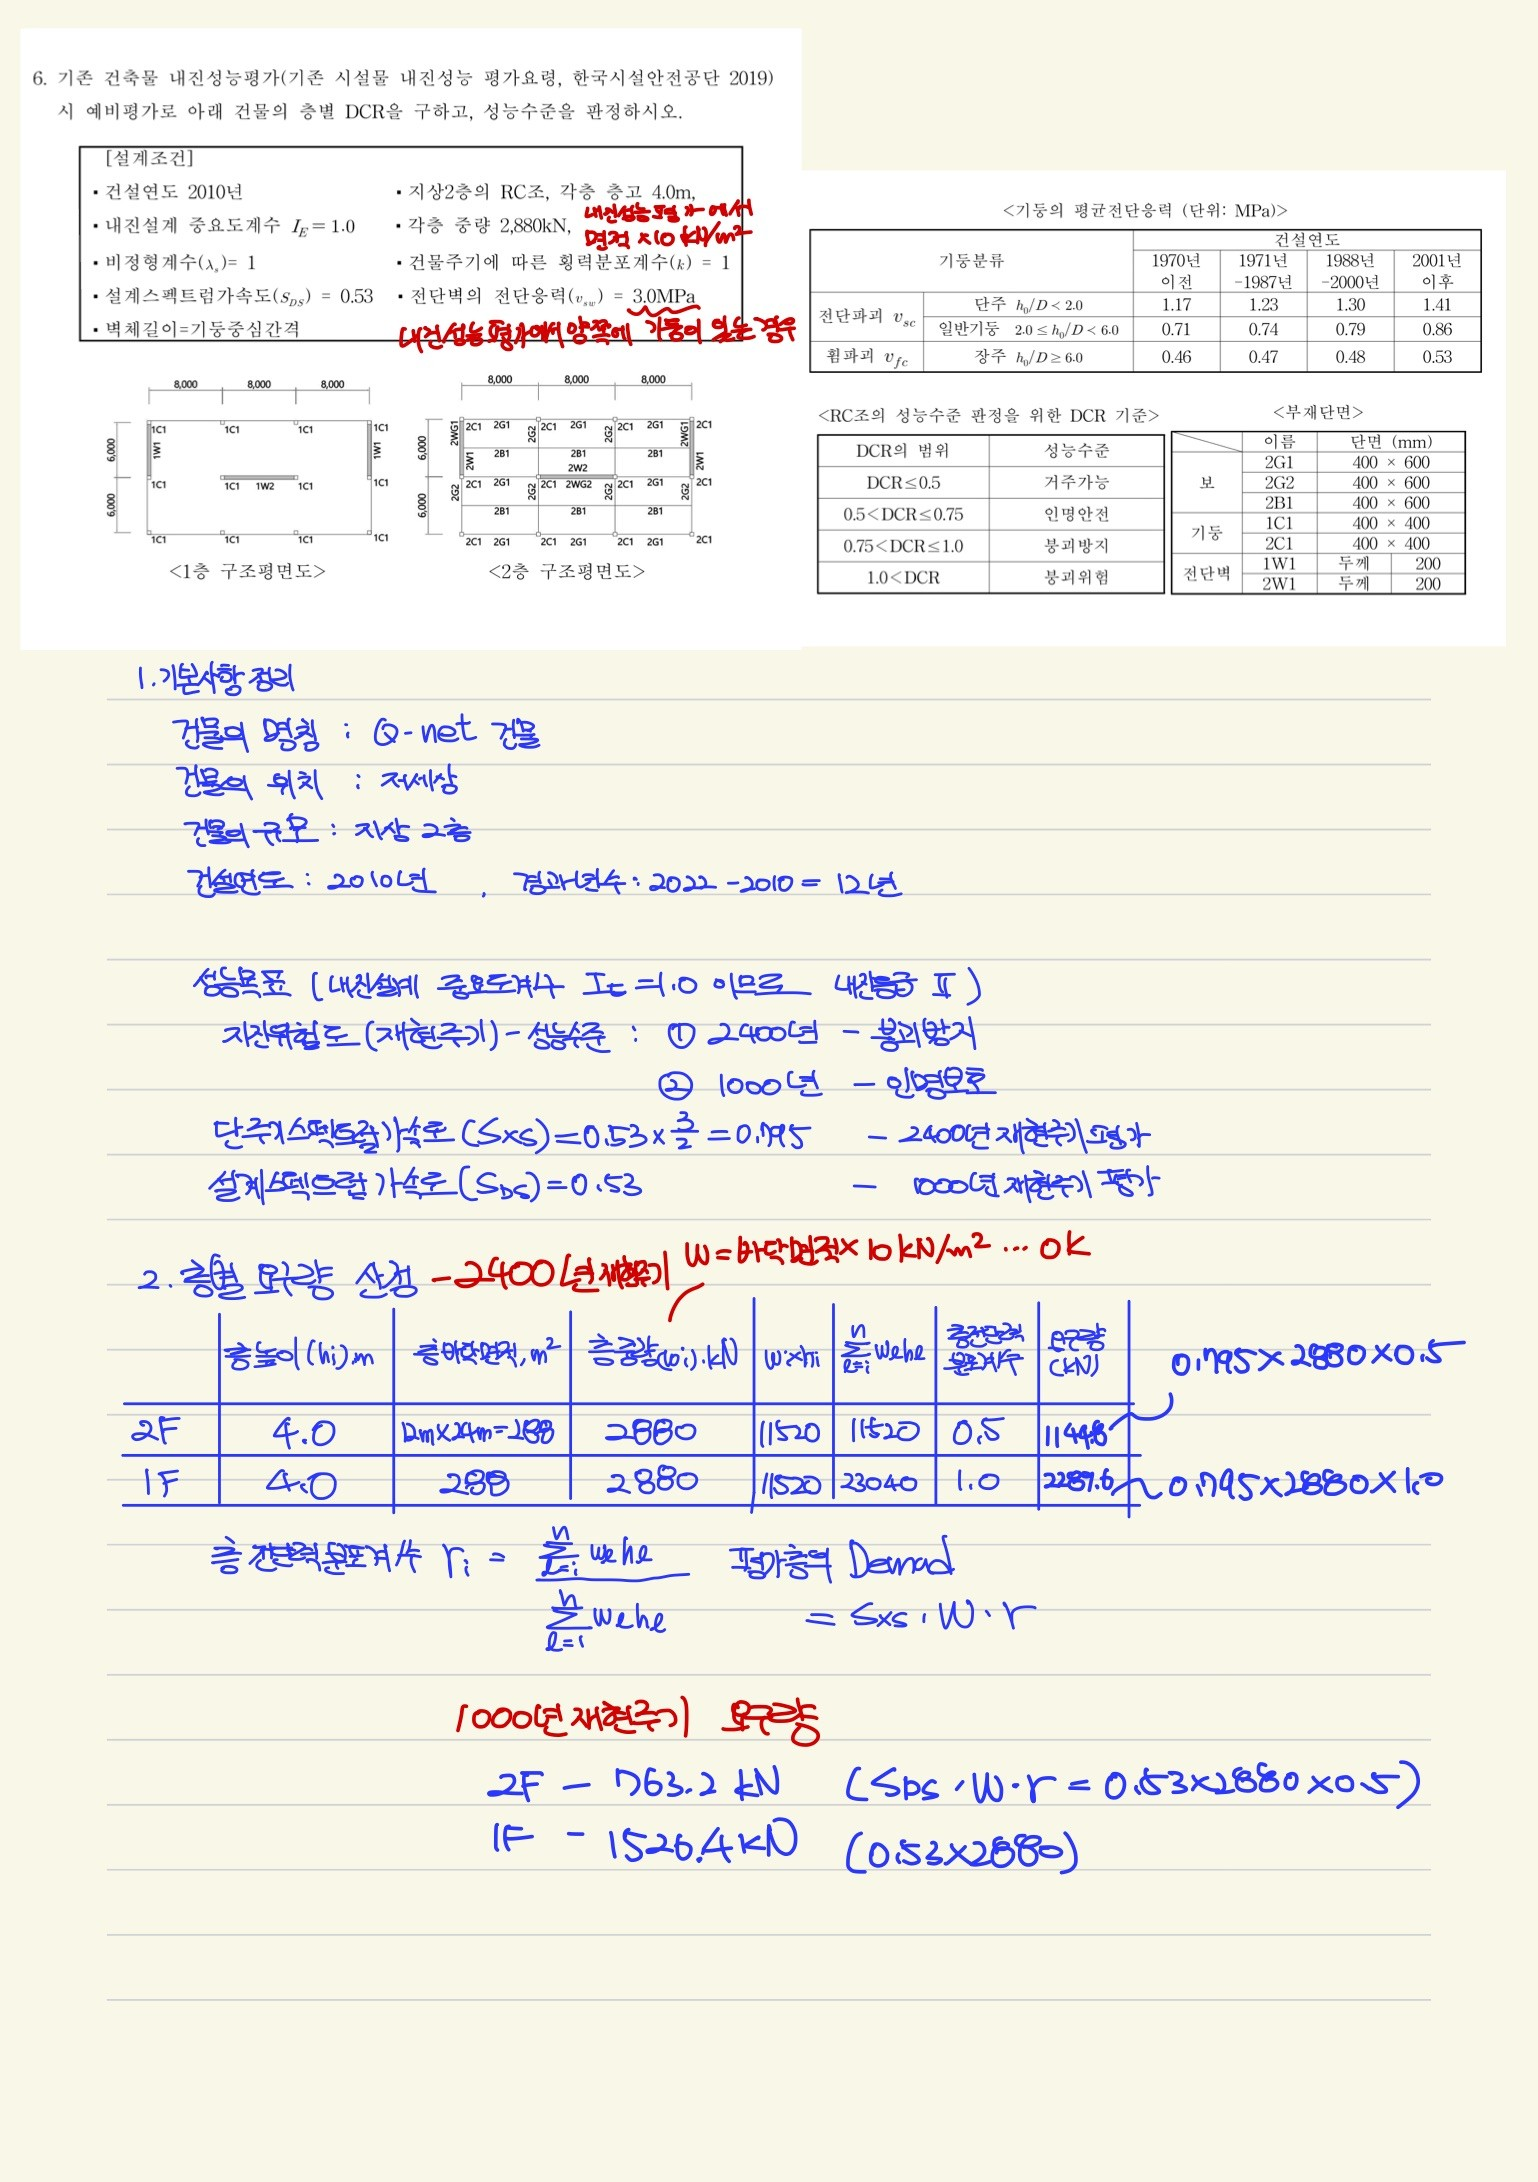 6. 기존 건축물 내진성능평가(기존 시설물 내진성능 평가요령, 한국시설안전공단 2019)
시 예비평가로 아래 건물의 층별 DCR을 구하고, 성능수준을 판정하시오.
[설계조건]
▪ 건설연도 2010년
▪ 지상2층의 RC조, 각층 층고 4.0m,
▪ 내진설계 중요도계수 I_E = 1.0
▪ 각층 중량 2,880kN,
내진성능평가에서
면적 ×10 kN/m²
▪ 비정형계수(λ_s)= 1
▪ 건물주기에 따른 횡력분포계수(k) = 1
▪ 설계스펙트럼가속도(S_DS) = 0.53
▪ 전단벽의 전단응력(v_sw) = 3.0MPa
▪ 벽체길이=기둥중심간격
내진성능평가에서 양쪽에 기둥이 있는 경우
8,000 8,000 8,000
6,000
6,000
1C1 1C1 1C1 1C1
1W1 1W1
1C1 1C1 1W2 1C1 1C1
1C1 1C1 1C1 1C1
<1층 구조평면도>
8,000 8,000 8,000
6,000
6,000
2WG1 2C1 2G1 2G2 2C1 2G1 2C1 2G1 2WG1 2C1
2W1 2B1 2B1 2B1 2W1
2W2
2G2 2C1 2G1 2G2 2C1 2WG2 2G2 2C1 2G1 2G2 2C1
2B1 2B1 2B1
2C1 2G1 2C1 2G1 2C1 2G1 2C1
<2층 구조평면도>
<기둥의 평균전단응력 (단위: MPa)>
기둥분류 건설연도
1970년 이전 1971년 -1987년 1988년 -2000년 2001년 이후
전단파괴 v_sc 단주 h₀/D < 2.0 1.17 1.23 1.30 1.41
일반기둥 2.0 ≤ h₀/D < 6.0 0.71 0.74 0.79 0.86
휨파괴 v_fc 장주 h₀/D ≥ 6.0 0.46 0.47 0.48 0.53
<RC조의 성능수준 판정을 위한 DCR 기준>
DCR의 범위 성능수준
DCR≤0.5 거주가능
0.5<DCR≤0.75 인명안전
0.75<DCR≤1.0 붕괴방지
1.0<DCR 붕괴위험
<부재단면>
이름 단면 (mm)
보 2G1 400 × 600
2G2 400 × 600
2B1 400 × 600
기둥 1C1 400 × 400
2C1 400 × 400
전단벽 1W1 두께 200
2W1 두께 200
1. 기본사항 정리
건물의 명칭 : Q-net 건물
건물의 위치 : 저세상
건물의 규모 : 지상 2층
건설연도 : 2010년 , 경과년수 : 2022 - 2010 = 12년
성능목표 (내진설계 중요도계수 I_E = 1.0 이므로 내진등급 Ⅱ)
지진위험도 (재현주기) - 성능수준 : ① 2400년 - 붕괴방지
② 1000년 - 인명보호
단주기스펙트럴가속도 (Sxs) = 0.53 × 3/2 = 0.795 - 2400년 재현주기 평가
설계스펙트럼가속도 (S_DS) = 0.53 - 1000년 재현주기 평가
2. 층별 요구량 산정 - 2400년 재현주기
W = 바닥면적 × 10 kN/m² ... OK
층높이 (hi), m 층바닥면적, m² 층중량 (wi), kN wi×hi Σⁿ_{ℓ=i} wℓhℓ 층전단력 분포계수 요구량 (kN)
2F 4.0 12m×24m=288 2880 11520 11520 0.5 1144.8
0.795×2880×0.5
1F 4.0 288 2880 11520 23040 1.0 2289.6
0.795×2880×1.0
층전단력분포계수 ri = Σⁿ_{ℓ=i} wℓhℓ / Σⁿ_{ℓ=1} wℓhℓ
평가층의 Demad
= Sxs · W · r
1000년 재현주기 요구량
2F - 763.2 kN (S_DS · W · r = 0.53×2880×0.5)
1F - 1526.4 kN (0.53×2880)